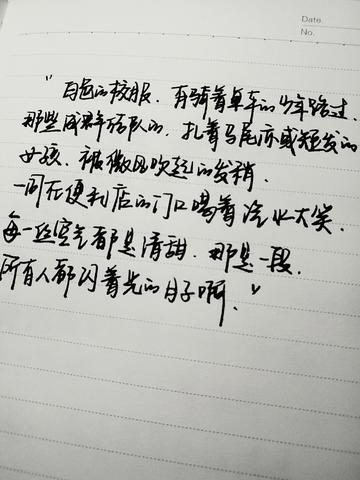 Date.
No.
“白色的校服．有骑着单车的少年路过．
那些成群结队的，扎着马尾亦或短发的
女孩．被微风吹起的发梢．
一同在便利店的门口喝着汽水大笑．
每一丝空气都是清甜．那是一段．
所有人都闪着光的日子啊．”